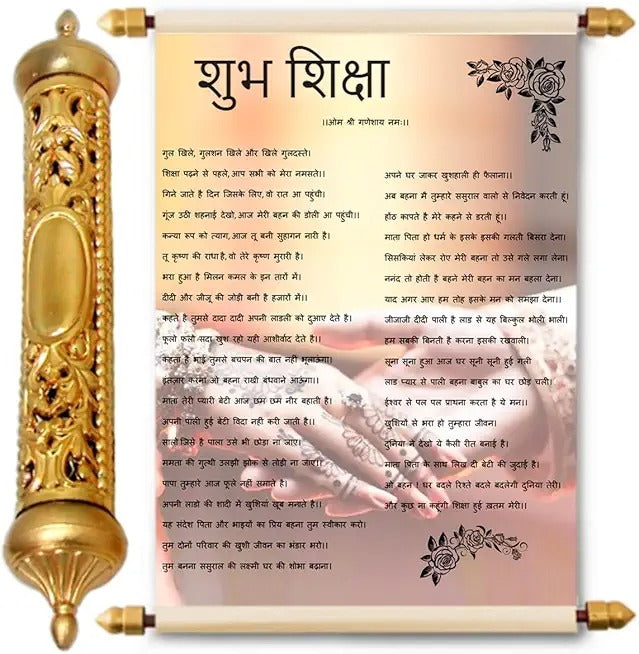 शुभ शिक्षा
।।ओम श्री गणेशाय नमः।।
गुल खिले, गुलशन खिले और खिले गुलदस्ते।
शिक्षा पढ़ने से पहले,आप सभी को मेरा नमस्ते।।
गिने जाते है दिन जिसके लिए,वो रात आ पहुंची।
गूंज उठी शहनाई देखो,आज मेरी बहन की डोली आ पहुंची।।
कन्या रूप को त्याग,आज तू बनी सुहागन नारी है।
तू कृष्ण की राधा है,वो तेरे कृष्ण मुरारी है।
भरा हुआ है मिलन कमल के इन तारों में।
दीदी और जीजू की जोड़ी बनी है हजारों में।।
कहते है तुमसे दादा दादी अपनी लाडली को दुआए देते है।
फूलो फलो सदा खुश रहो यही आशीर्वाद देते है।।
कहता है भाई तुमसे बचपन की बात नहीं भूलाऊंगा।
इंतज़ार करना ओ बहना राखी बंधवाने आऊंगा।।
माता तेरी प्यारी बेटी आज छम छम नीर बहाती है।
अपनी पाली हुई बेटी विदा नही करी जाती है।।
सालों जिसे है पाला उसे भी छोड़ा ना जाए।
ममता की गुत्थी उलझी झोक से तोड़ी ना जाए।।
पापा तुम्हारे आज फूले नहीं समाते है।
अपनी लाडो की शादी में खुशियां खूब मनाते है।।
यह संदेश पिता और भाइयों का प्रिय बहना तुम स्वीकार करो।
तुम दोनों परिवार की खुशी जीवन का भंडार भरो।।
तुम बनना ससुराल की लक्ष्मी घर की शोभा बढ़ाना।
अपने घर जाकर खुशहाली ही फैलाना।।
अब बहना मै तुम्हारे ससुराल वालो से निवेदन करती हूं।
होठ कापते है मेरे कहने से डरती हूं।।
माता पिता हो धर्म के इसके इसकी गलती बिसरा देना।
सिसकियां लेकर रोए मेरी बहना तो उसे गले लगा लेना।
ननंद तो होती है बहने मेरी बहन का मन बहला देना।
याद अगर आए हम तोह इसके मन को समझा देना।।
जीजाजी दीदी पाली है लाड से यह बिल्कुल भोली भाली।
हम सबकी बिनती है करना इसकी रखवाली।
सूना सूना हुआ आज घर सूनी सूनी हुई गली
लाड प्यार से पाली बहना बाबुल का घर छोड़ चली।
ईश्वर से पल पल प्राथना करता है ये मन।।
खुशियों से भरा हो तुम्हारा जीवन।
दुनिया ने देखो ये कैसी रीत बनाई है।
माता पिता के साथ लिख दी बेटी की जुदाई है।
ओ बहन ! घर बदले रिश्ते बदले बदलेगी दुनिया तेरी।
और कुछ ना कहूंगी शिक्षा हुई ख़तम मेरी।।